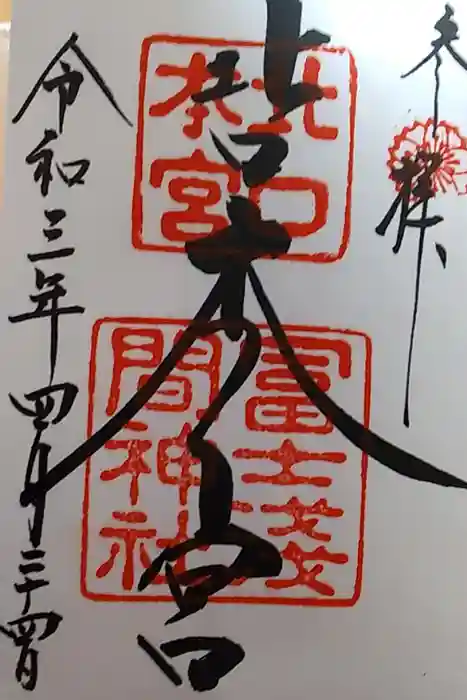 参拝
北口本宮
北口
本宮
冨士淺
間神社
令和三年四月二十四日